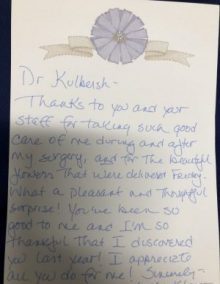 Dr Kulbersh-
Thanks to you and your
staff for taking such good
care of me during and after
my surgery, and for the beautiful
flowers that were delivered Friday-
What a pleasant and thoughtful
surprise! You've been so
good to me and I'm so
thankful that I discovered
you last year! I appreciate
all you do for me! Sincerely-